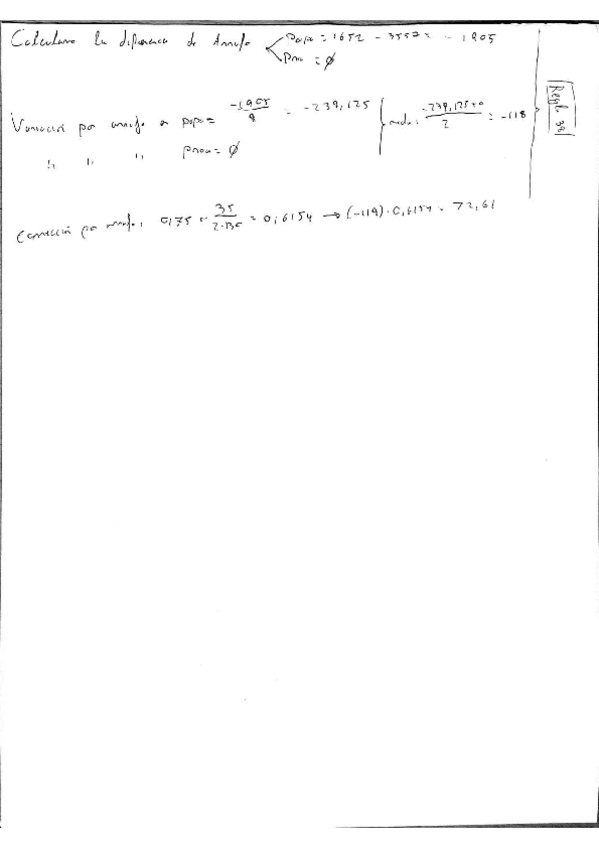 Calculamos la diferencia de Arrufo Popa = 1652 - 3557 = - 1905
Proa = ∅
Variación por arrufo en popa = -1905/8 = -239,125 media: -239,125+0/2 = -118
" " " proa = ∅
Regla 38
Corrección por arrufo: 0,75 - 35/2·130 = 0,6154 → (-119)·0,6154 = 72,61